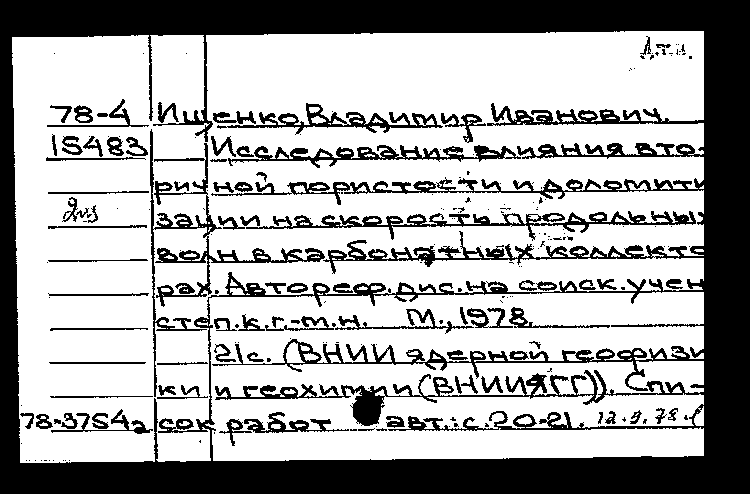 Д.т.н.
78-4 Ищенко, Владимир Иванович.
15483 Исследование влияния вто-
ричной пористости и доломити
зации на скорость продольных
волн в карбонатных коллекто
рах. Автореф. дис. на соиск. учен
степ. к.г.-м.н. М., 1978.
21с. (ВНИИ ядерной геофизи
ки и геохимии (ВНИИЯГГ)). Спи-
78-3754а сок работ авт.: с.20-21. 12.9.78.